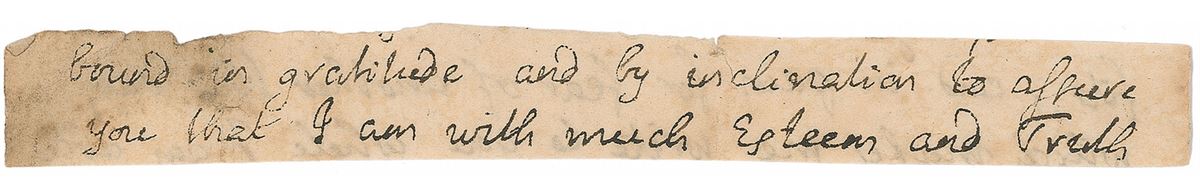 bound in gratitude and by inclination to assure
you that I am with much Esteem and Truth